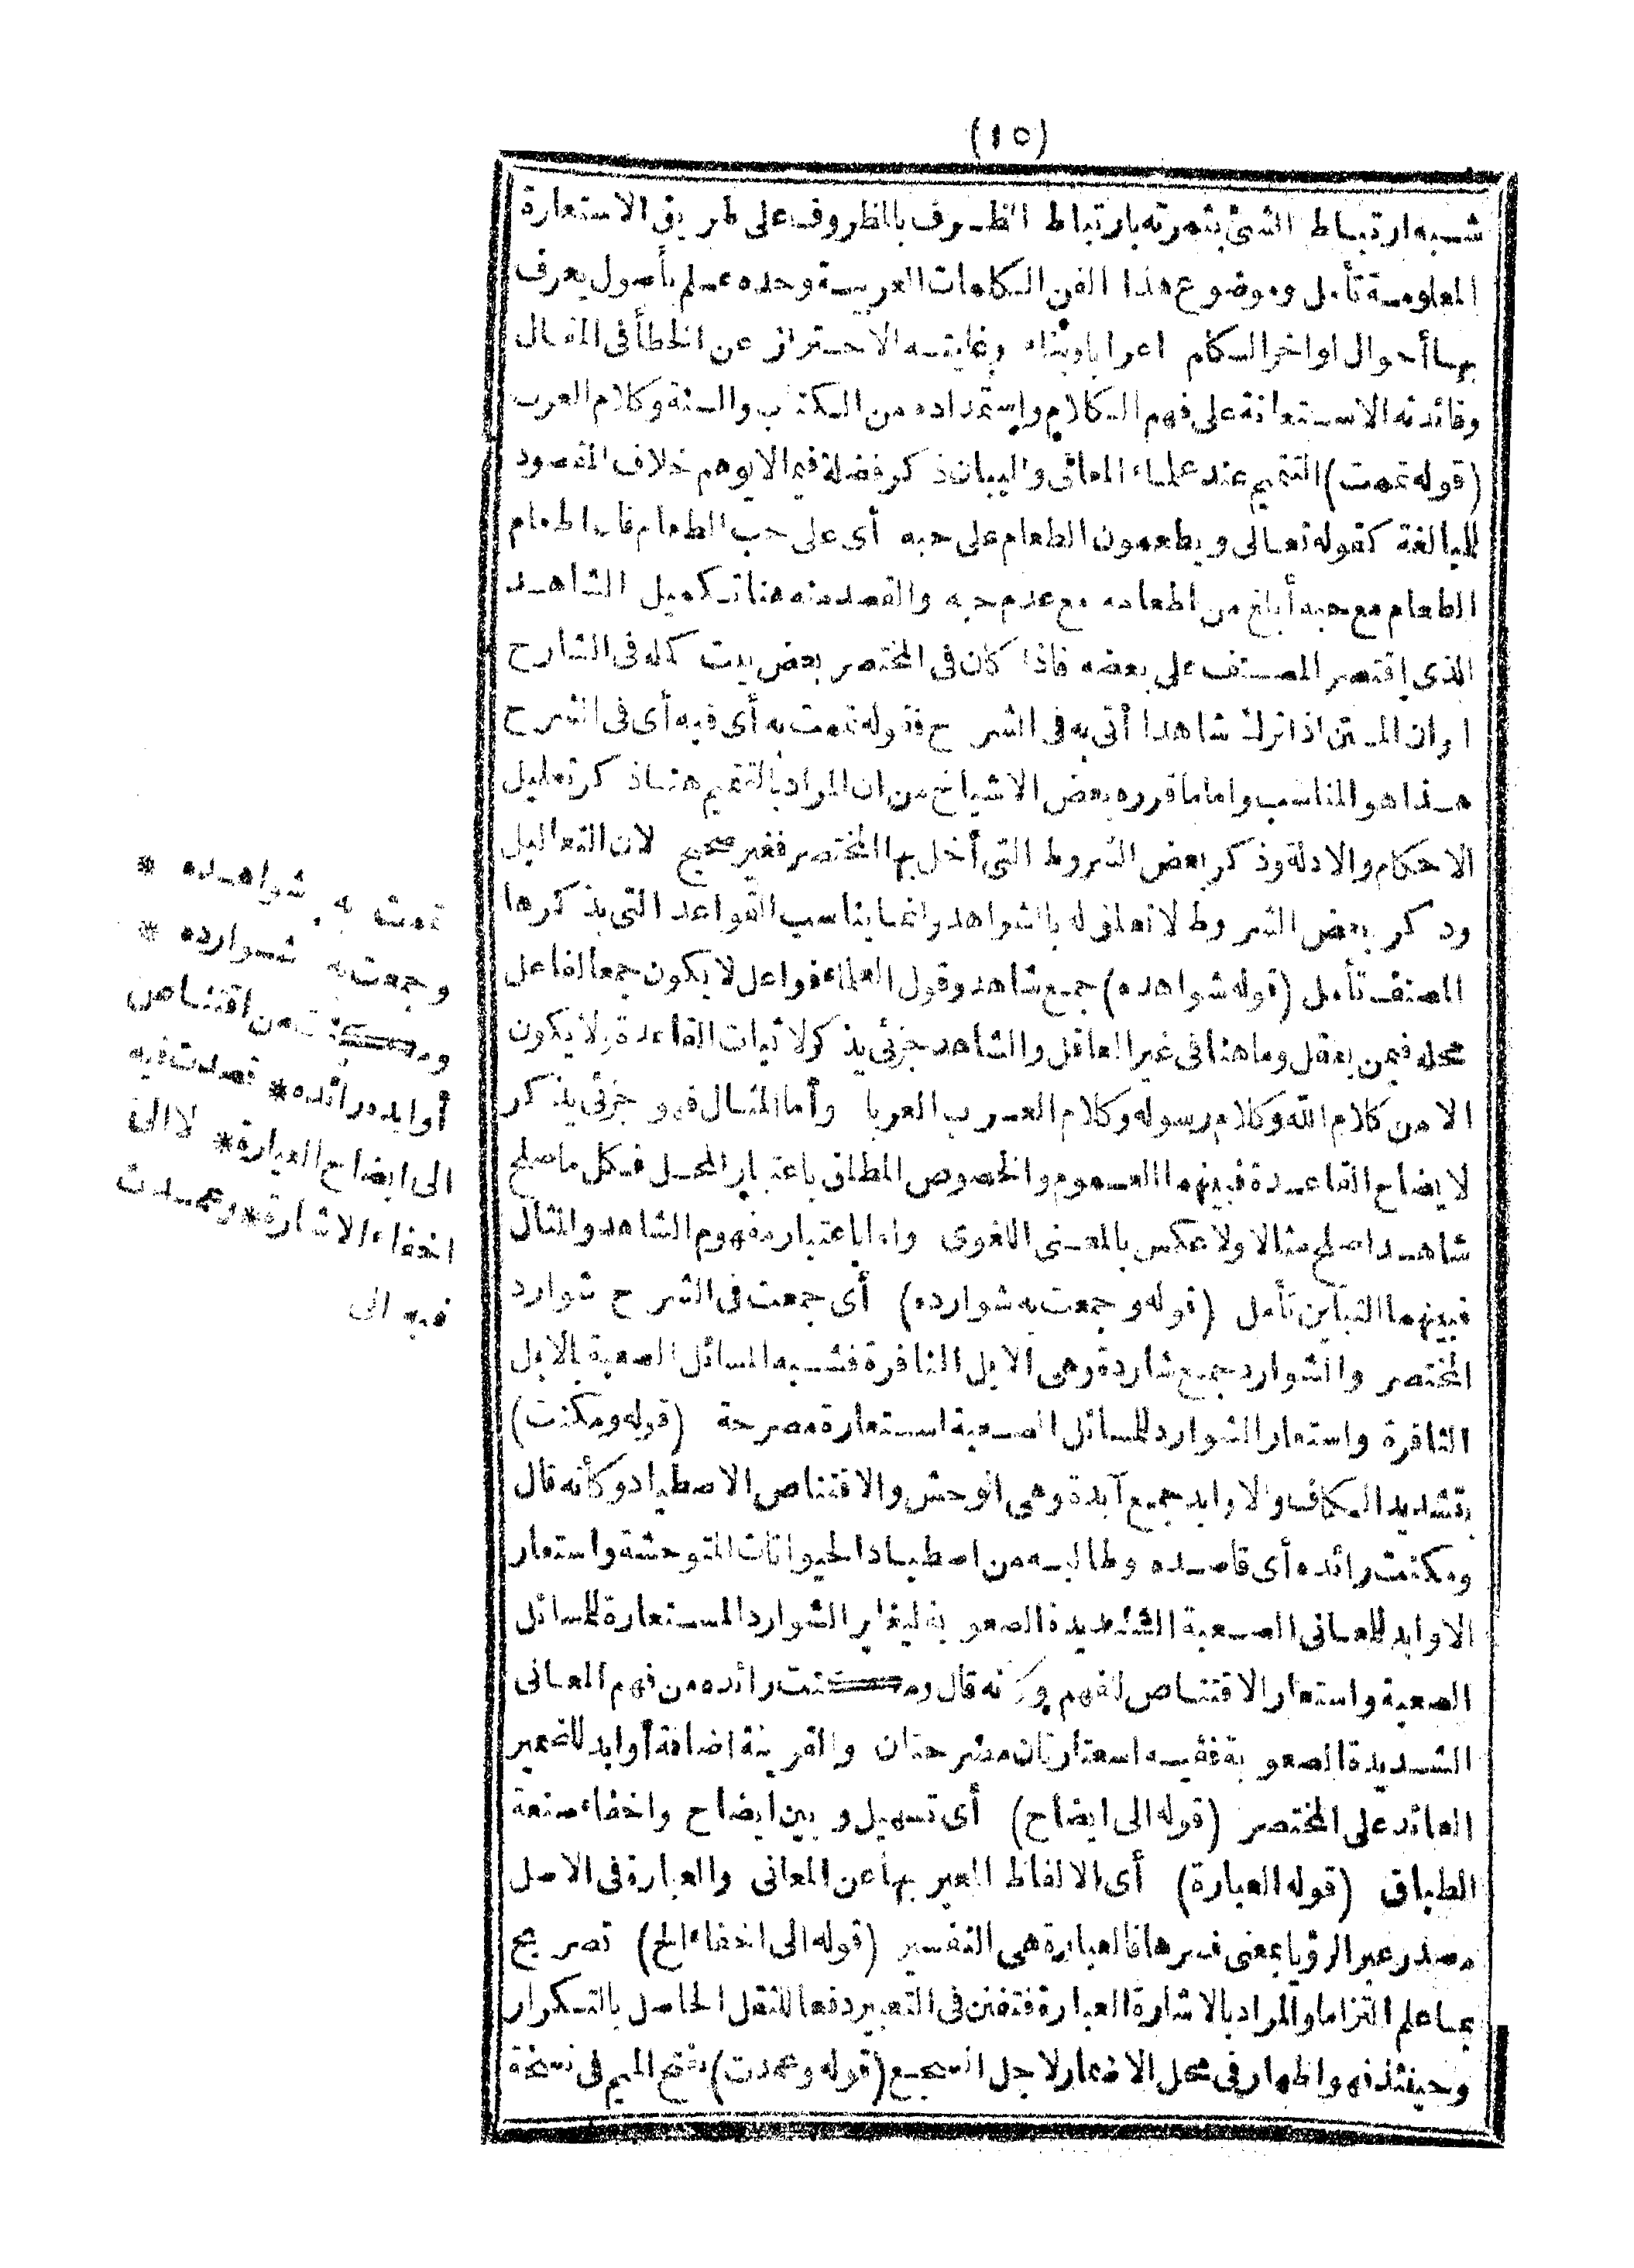 (١٥)
شبه ارتباط الشئ بثمرته بارتباط الظرف بالمظروف على طريق الاستعارة
المعلومة تأمل وموضوع هذا الفن الكلمات العربية وحده علم بأصول يعرف
بها أحوال اواخر الكلم اعرابا وبناء وغايته الاحتراز عن الخطأ فى المقال
وفائدته الاستعانة على فهم الكلام واستمداده من الكتاب والسنة وكلام العرب
(قوله تممت) التتميم عند علماء المعانى والبيان ذكر فضلة فيما لا يوهم خلاف المقصود
للمبالغة كقوله تعالى ويطعمون الطعام على حبه أى على حب الطعام فاطعام
الطعام مع حبه أبلغ من اطعامه مع عدم حبه والقصد منه هنا تكميل الشاهد
الذى اقتصر المصنف على بعضه فاذا كان فى المختصر بعض بيت كمله فى الشارح
او ان المتن اذا ترك شاهدا أتى به فى الشرح فقوله تممت به أى فيه أى فى الشرح
هذا هو المناسب واما ما قرره بعض الاشياخ من ان المراد بالتتميم هنا ذكر تعليل
الاحكام والادلة وذكر بعض الشروط التى أخل بها المختصر فغير صحيح لان التعاليل
وذكر بعض الشروط لا تعلق له بالشواهد وانما يناسب القواعد التى يذكرها
المصنف تأمل (قوله شواهده) جمع شاهد وقول العلماء فواعل لا يكون جمعا لفاعل
محله فيمن يعقل وما هنا فى غير العاقل والشاهد جزئى يذكر لاثبات القاعدة ولا يكون
الا من كلام الله وكلام رسوله وكلام العرب العربا وأما المثال فهو جزئى يذكر
لايضاح القاعدة فبينهما العموم والخصوص المطلق باعتبار المحل فكل ما صلح
شاهدا صلح مثالا ولا عكس بالمعنى اللغوى واما باعتبار مفهوم الشاهد والمثال
فبينهما التباين تأمل (قوله وجمعت به شوارده) أى جمعت فى الشرح شوارد
المختصر والشوارد جمع شاردة وهى الابل النافرة فشبه المسائل الصعبة بالابل
النافرة واستعار الشوارد للمسائل الصعبة استعارة مصرحة (قوله ومكنت)
بتشديد الكاف والاوابد جمع آبدة وهى الوحش والاقتناص الاصطياد وكأنه قال
ومكنت رائده أى قاصده وطالبه من اصطياد الحيوانات المتوحشة واستعار
الاوابد للمعانى الصعبة الشديدة الصعوبة ليغاير الشوارد المستعارة للمسائل
الصعبة واستعار الاقتناص لفهم وكأنه قال ومكنت رائده من فهم المعانى
الشديدة الصعوبة ففيه استعارتان مصرحتان والقرينة اضافة أوابد للضمير
العائد على المختصر (قوله الى ايضاح) أى تسهيل وبين ايضاح واخفاء صنعة
الطباق (قوله العبارة) أى الالفاظ المعبر بها عن المعانى والعبارة فى الاصل
مصدر عبر الرؤيا بمعنى فسرها فالعبارة هى التفسير (قوله الى اخفاء الخ) تصريح
بما علم التزاما والمراد بالاشارة العبارة فتفنن فى التعبير دفعا للثقل الحاصل بالتكرار
وحينئذ فهو اظهار فى محل الاضمار لاجل السجع (قوله وعمدت) بفتح الميم فى نسخة
تممت به شواهده *
وجمعت به شوارده *
ومكنت من اقتناص
أوابده رائده * قصدت فيه
الى ايضاح العبارة * لا الى
اخفاء الاشارة * وعمدت
فيه الى